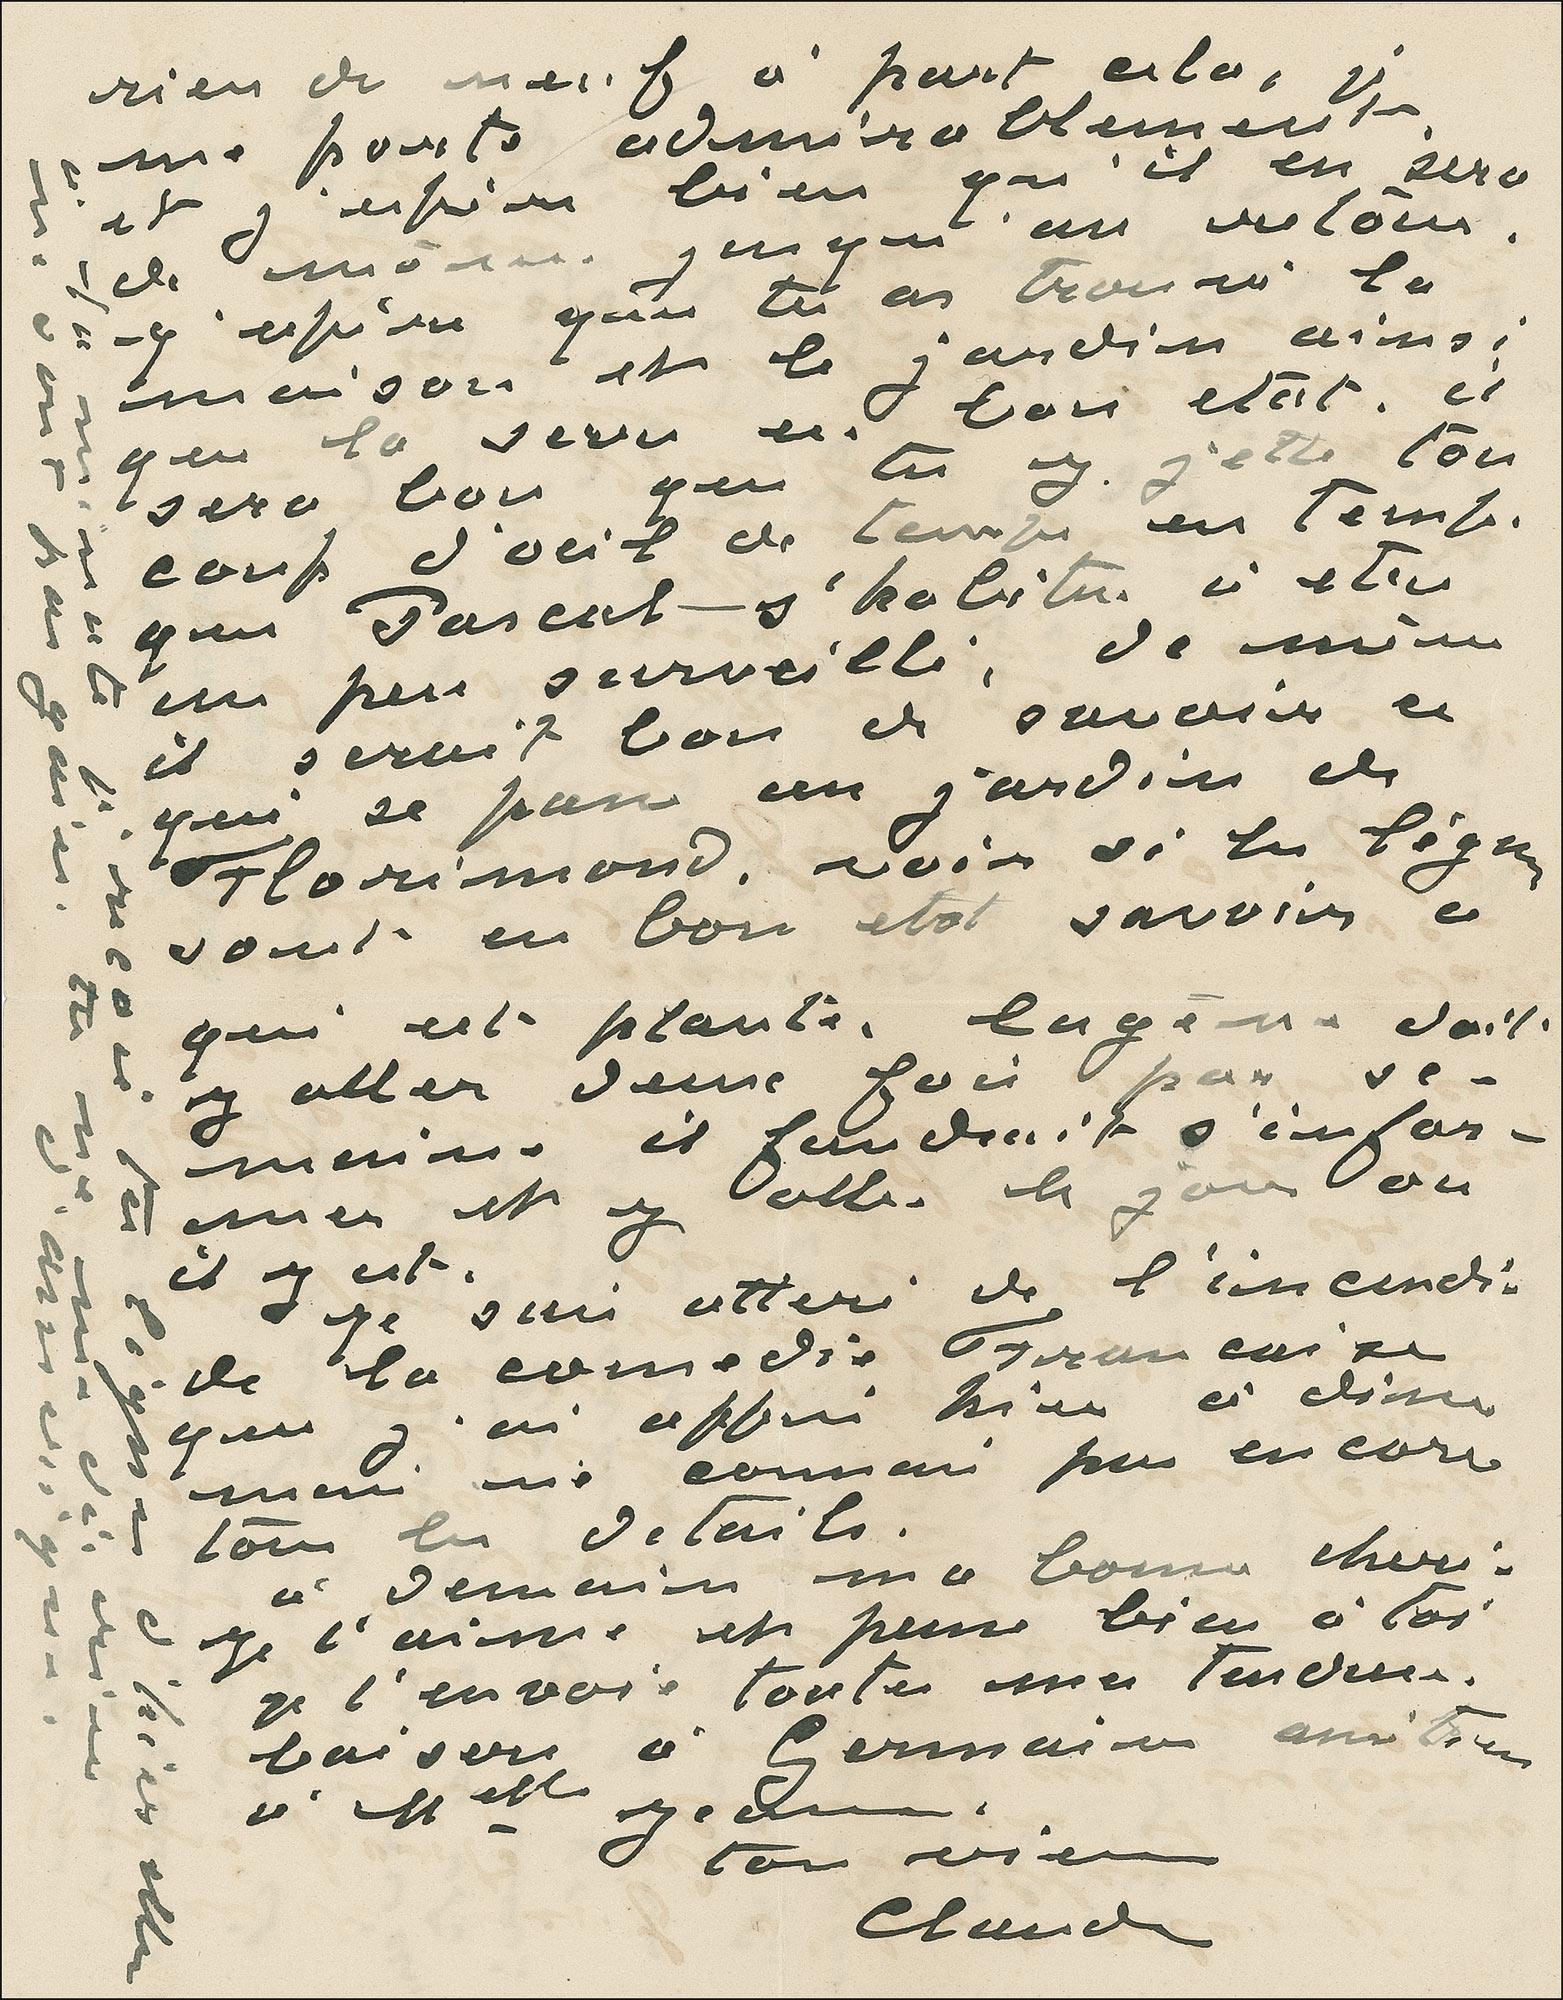 rien de neuf à part cela, je
me porte admirablement
et j'espère bien qu'il en sera
de même jusqu'au retour.
j'espère que tu as trouvé la
maison et le jardin ainsi
que la serre en bon état. il
sera bon que tu y jette ton
coup d'oeil de temps en temps.
que Pascal s'habitue à etre
un peu surveillé, de même
il serait bon de savoir ce
qui se passe au jardin de
Florimond. voir si les légumes
sont en bon etat savoir ce
qui est planté. Eugène doit
y aller deux fois par se-
maine il faudrait s'infor-
mer et y aller le jour ou
il y est.
je suis atteré de l'incendie
de la comedie Francaise
que j'ai appris hier à diner
mais ne connais pas encore
tous les details.
à demain ma bonne cherie
je t'aime et pense bien à toi
je t'envoie toute mes tendresses.
baisers à Germaine amitiés
à Melle
ton vieux
Claude